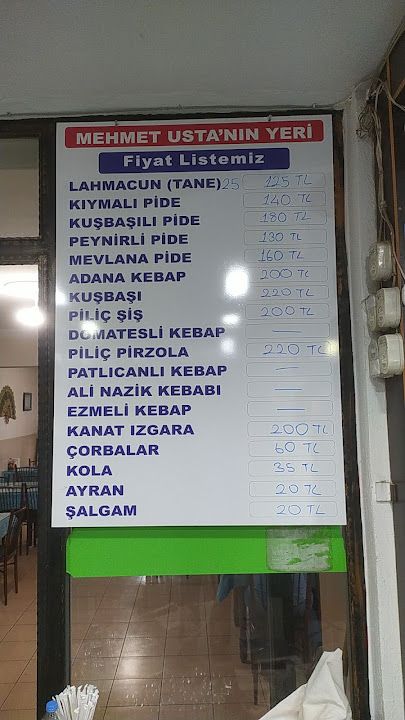 MEHMET USTA'NIN YERİ
Fiyat Listemiz
LAHMACUN (TANE) 25 125 TL
KIYMALI PİDE 140 TL
KUŞBAŞILI PİDE 180 TL
PEYNİRLİ PİDE 130 TL
MEVLANA PİDE 160 TL
ADANA KEBAP 200 TL
KUŞBAŞI 220 TL
PİLİÇ ŞİŞ 200 TL
DOMATESLİ KEBAP —
PİLİÇ PİRZOLA 220 TL
PATLICANLI KEBAP —
ALİ NAZİK KEBABI —
EZMELİ KEBAP —
KANAT IZGARA 200 TL
ÇORBALAR 60 TL
KOLA 35 TL
AYRAN 20 TL
ŞALGAM 20 TL